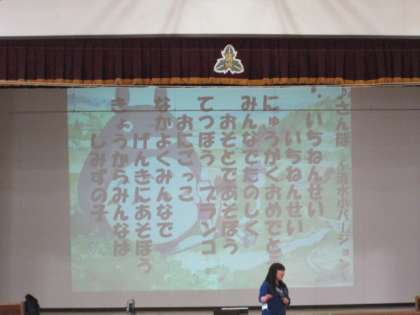 ♪さんぽ 〜清水小バージョン〜
いちねんせい
いちねんせい
にゅうがくおめでと
みんなでたのしく
おそとであそぼう
てつぼう ブランコ
おにごっこ
なかよくみんなで
げんきにあそぼう
きょうからみんなは
しみずの子